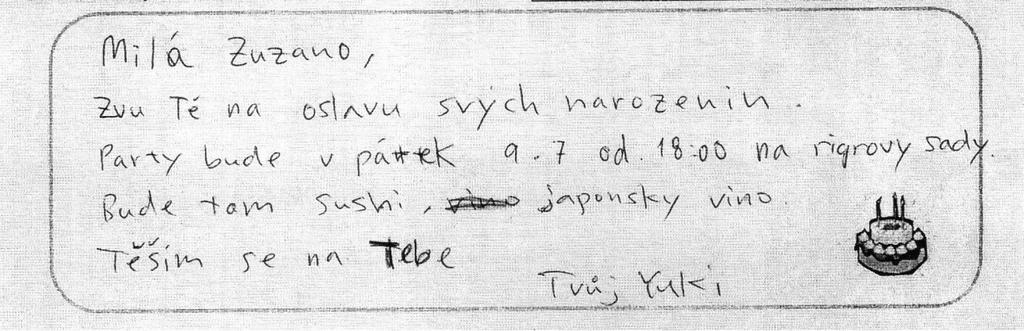 Milá Zuzano,
Zvu Tě na oslavu svých narozenin.
Party bude v pátek 9.7 od. 18:00 na rigrovy sady.
Bude tam sushi, japonsky vino.
Těším se na Tebe
Tvůj Yuki